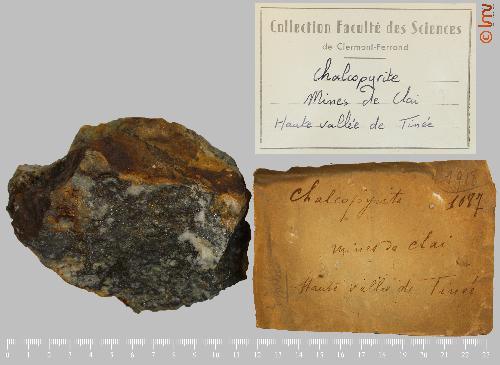 Collection Faculté des Sciences
de Clermont-Ferrand
Chalcopyrite
Mines de Clai
Haute vallée de Tinée
Chalcopyrite
1087
mines de Clai
Haute vallée de Tinée
0 1 2 3 4 5 6 7 8 9 10 11 12 13 14 15 16 17 18 19 20 21 22 23